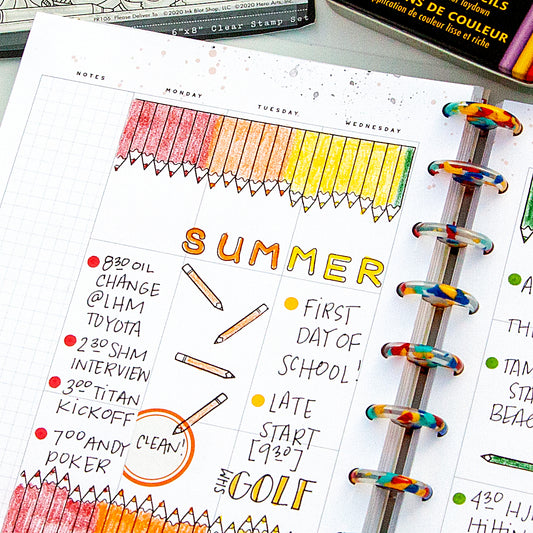 PR106 Please Deliver To ©2020 Ink Blot Shop, LLC. ©2020 Hero Arts, Inc.
6"x8" Clear Stamp Set
laydown
NS DE COULEUR
application de couleur lisse et riche
NOTES
MONDAY
TUESDAY
WEDNESDAY
SUMMER
830 OIL
CHANGE
@LHM
TOYOTA
2 30 SHM
INTERVIEW
3 00 TITAN
KICKOFF
7 00 ANDY
POKER
CLEAN!
FIRST
DAY OF
SCHOOL!
LATE
START
[9 30]
SHM
GOLF
A
THI
TAM
STA
BEAC
4 30 HJH
HiHin